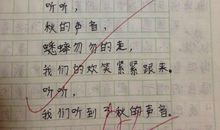 听听，
秋的声音，
蟋蟀匆匆的走，
我们的欢笑紧紧跟来。
听听，
我们听到了秋的声音。